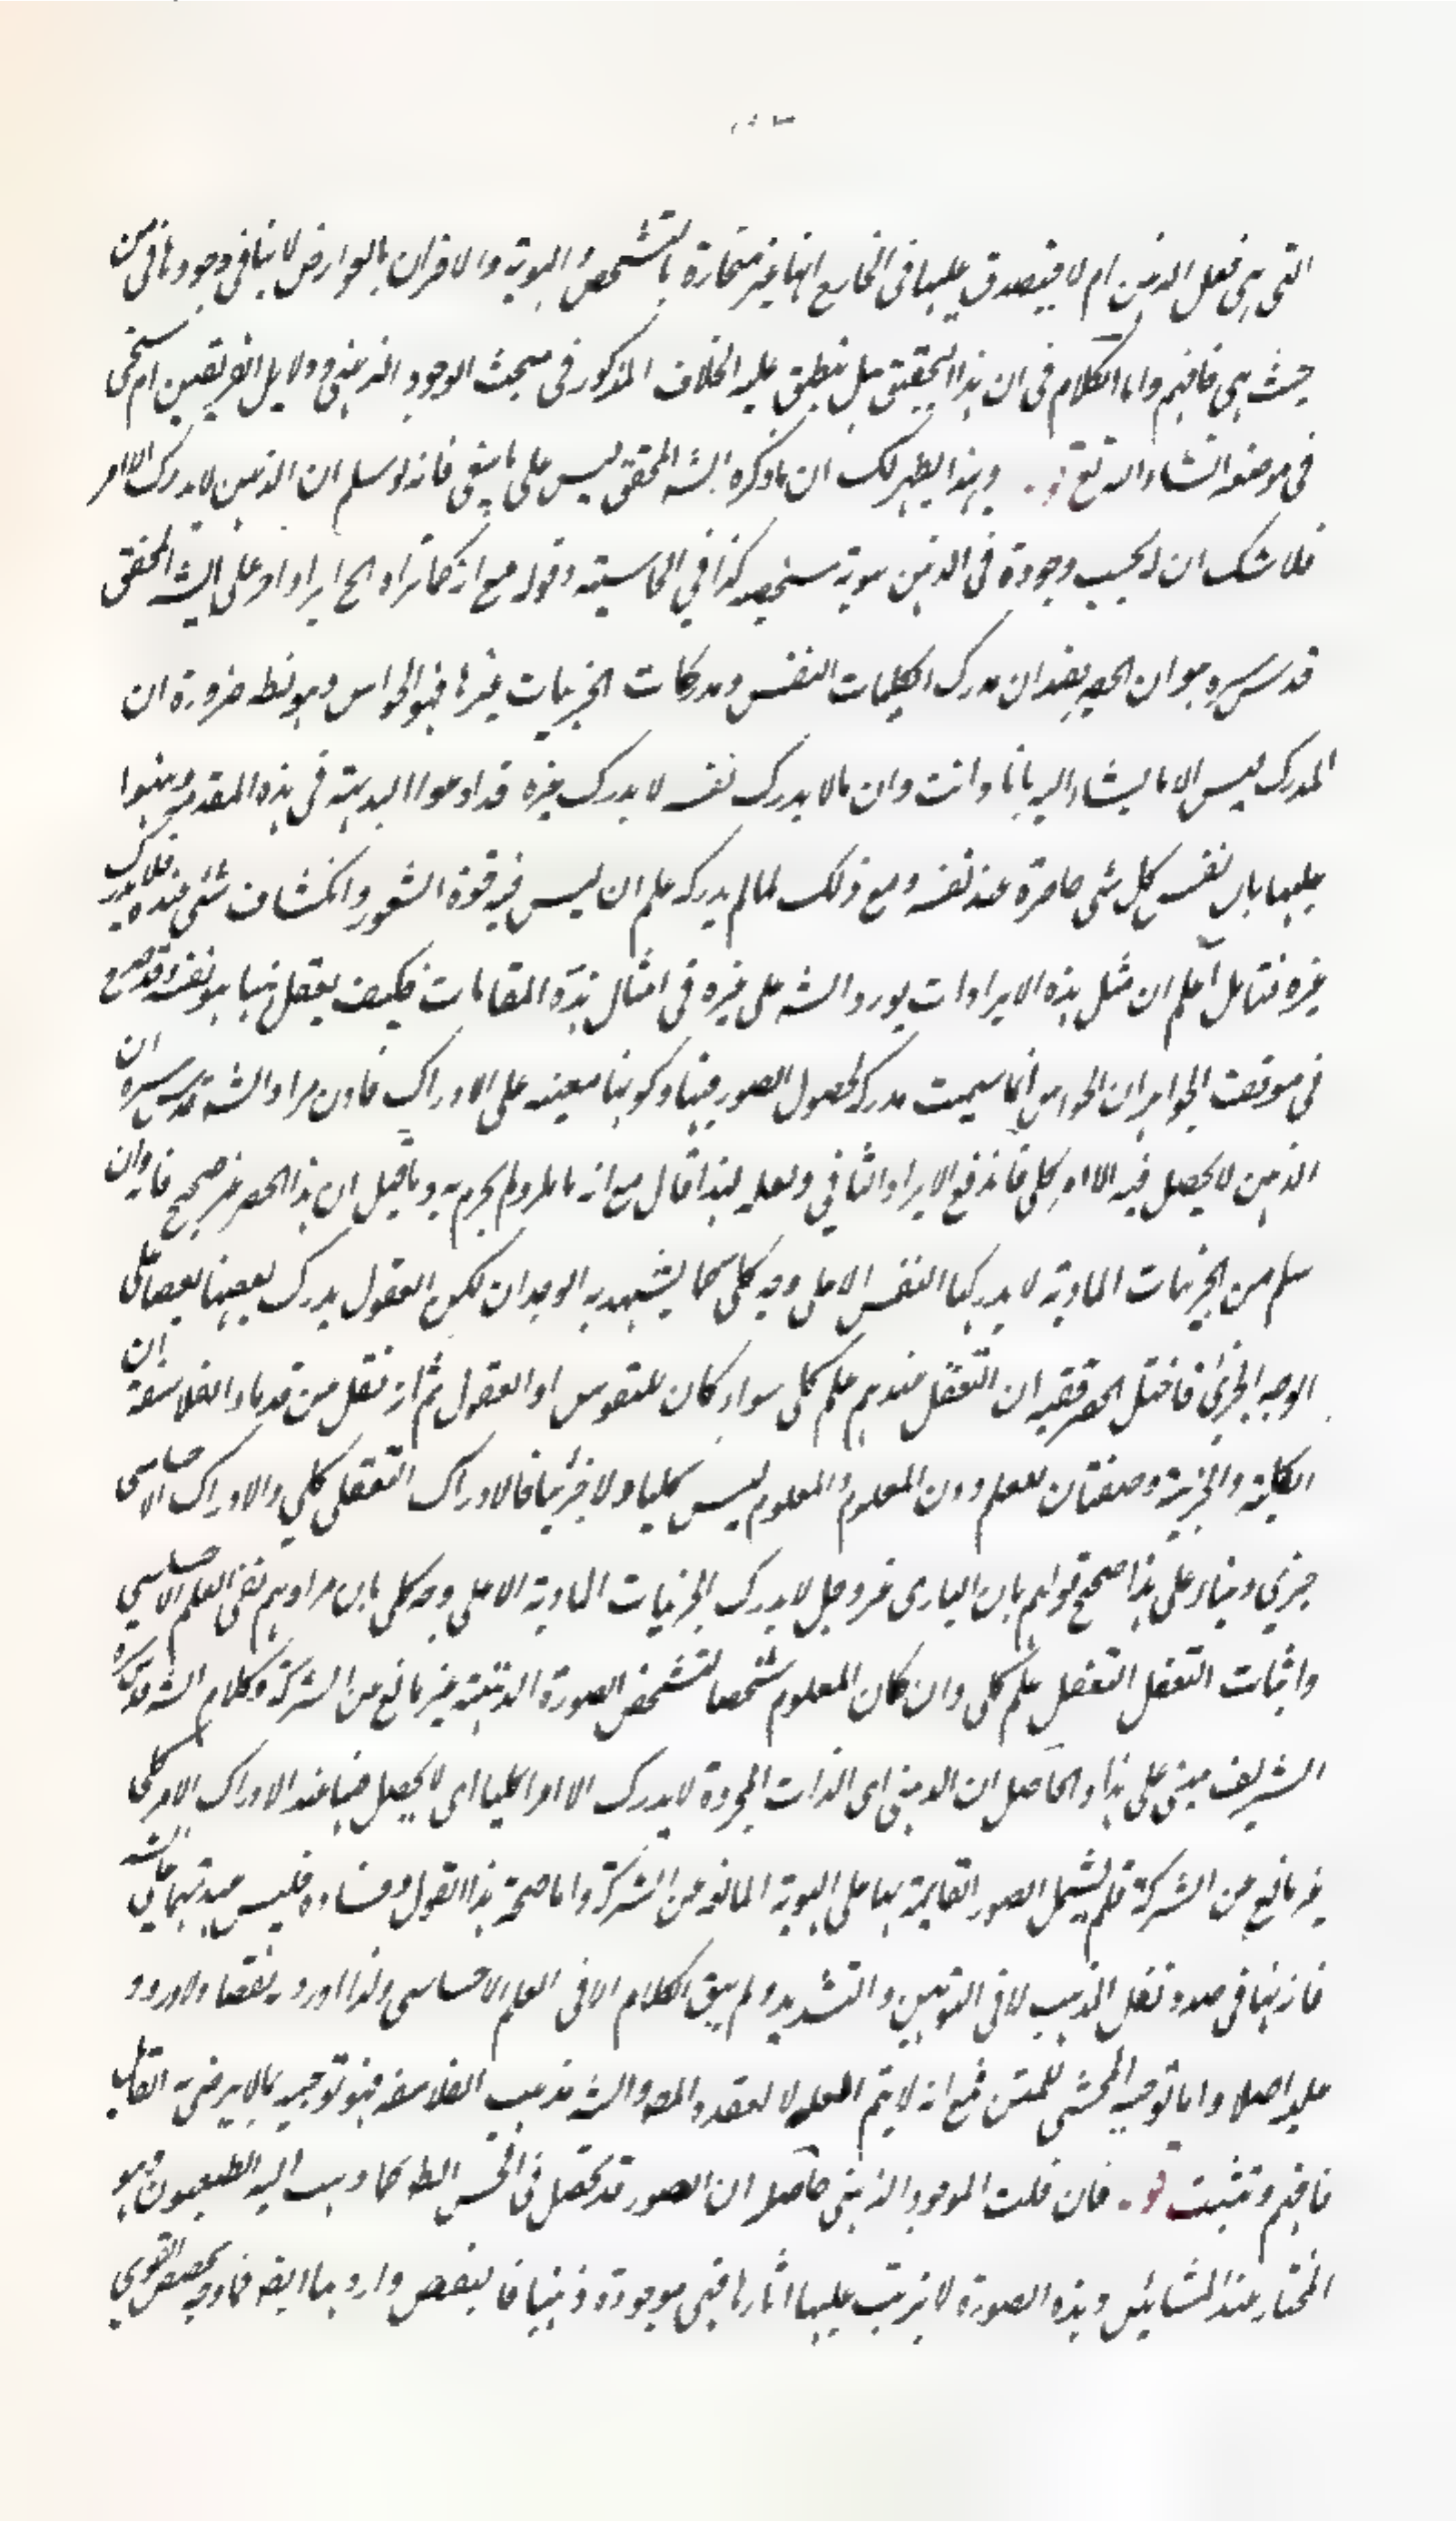 التى هى فعل الذهن ام لا فيتصدق عليها فى الخارج انها غير منحازة بالتشخص والهوية والاقران بالعوارض لا ينافى وجودها فى من
حيث هى فافهم واما الكلام فى ان هذا التحقيق هل ينطبق عليه الخلاف المذكور فى مبحث الوجود الذهنى ودلايل الفريقين ام
فى موضعه انشاء الله تع قو. وبهذا يظهر لك ان ما ذكره الشه المحقق ليس على ما ينبغى فانه لو سلم ان الذهن لا يدرك الا
فلا شك ان له بحسب وجوده فى الذهن هوية كذا في الحاشية وقوله مع انه كما تراه الخ ايراد اخر على الشه المحقق
قدس سره هو ان الحصر يفيد ان مدرك الكليات النفس ومدركات الجزئيات غيرها فهو الحواس وهو بط ضرورة ان
المدرك ليس الا ما يشاء اليه بانا وانت وان ما لا يدرك نفسه لا يدرك غيره قد ادعوا البديهة فى هذه المقدمة ونبهوا
عليها بان نفس كل شى حاضرة عند نفسه ومع ذلك لما لم يدركه علم ان ليس فيه قوة الشعور وانكشاف شئى عنده فلا يدرك
غيره فتامل اعلم ان مثل هذه الايرادات يورد الشه على غيره فى امثال هذه المقامات فكيف يغفل هنا هو نفسه وقد صرح
فى موقف الجواهر ان الحواس انما سميت مدركة لحصول الصور فيها وكونها معينه على الادراك فاذن مراد الشه قدس سره ان
الذهن لا يحصل فيه الا امر كلى فاندفع الايراد الثانى ولعله لهذا قال مع انه ولم يجزم به وما قيل ان هذا الحصر غير صحيح فانه وان
سلم من الجزئيات المادية لا يدركها النفس الا على وجه كلى كما يشهد به الوجدان لكن العقول يدرك بعضها بعضا على
الوجه الجزئى فاختل الحصر ففيه ان التعقل عندهم علم كلى سواء كان للنفوس او العقول ثم انه نقل من قدماء الفلاسفة ان
الكلية والجزئية وصفتان للعلم دون المعلوم والمعلوم ليس كليا ولا جزئيا فالادراك التعقلى كلي والادراك الاحساسى
جزئي وبناء على هذا صحح قولهم بان البارى عز وجل لا يدرك الجزئيات المادية الا على وجه كلى بان مرادهم نفى العلم الاحساسي
واثبات التعقل التعقل علم كلى وان كان المعلوم شخصا لتشخص الصورة الذهنية غير مانع من الشركة وكلام الشه قدس سره
الشريف مبنى على هذا والحاصل ان الذهنى اى الذات المجردة لا يدرك الا امرا كليا اى لا يحصل هنا عند الادراك الا امر كلى
غير مانع من الشركة فلم يشمل الصور القايمة بها على الهوية المانعه من الشركة واما صحة هذا القول وفساده فليس عهدتهما على الشه
فانه هنا فى صدد نقل المذهب لا فى التوهين والتشديد ولم يبق الكلام الا فى العلم الاحساسى ولذا اورد به نقضا ولا ورود
عليه اصلا واما توجيه المحشى للمتن فمع انه لا يتم لا لعقده المص والشه مذهب الفلاسفه فهو توجيه بما لا يرضى به القايل
فافهم وتثبت قو. فان قلت الموجود الذهنى حاصله ان الصور قد تحصل فى الحس الظ كما ذهب اليه الطبيعيون وهو
المختار عند المشائين وهذه الصورة لا يترتب عليها اثارها فهى موجودة ذهنيا فالنقض وارد بها ايضه فما وجه تخصيص القوي